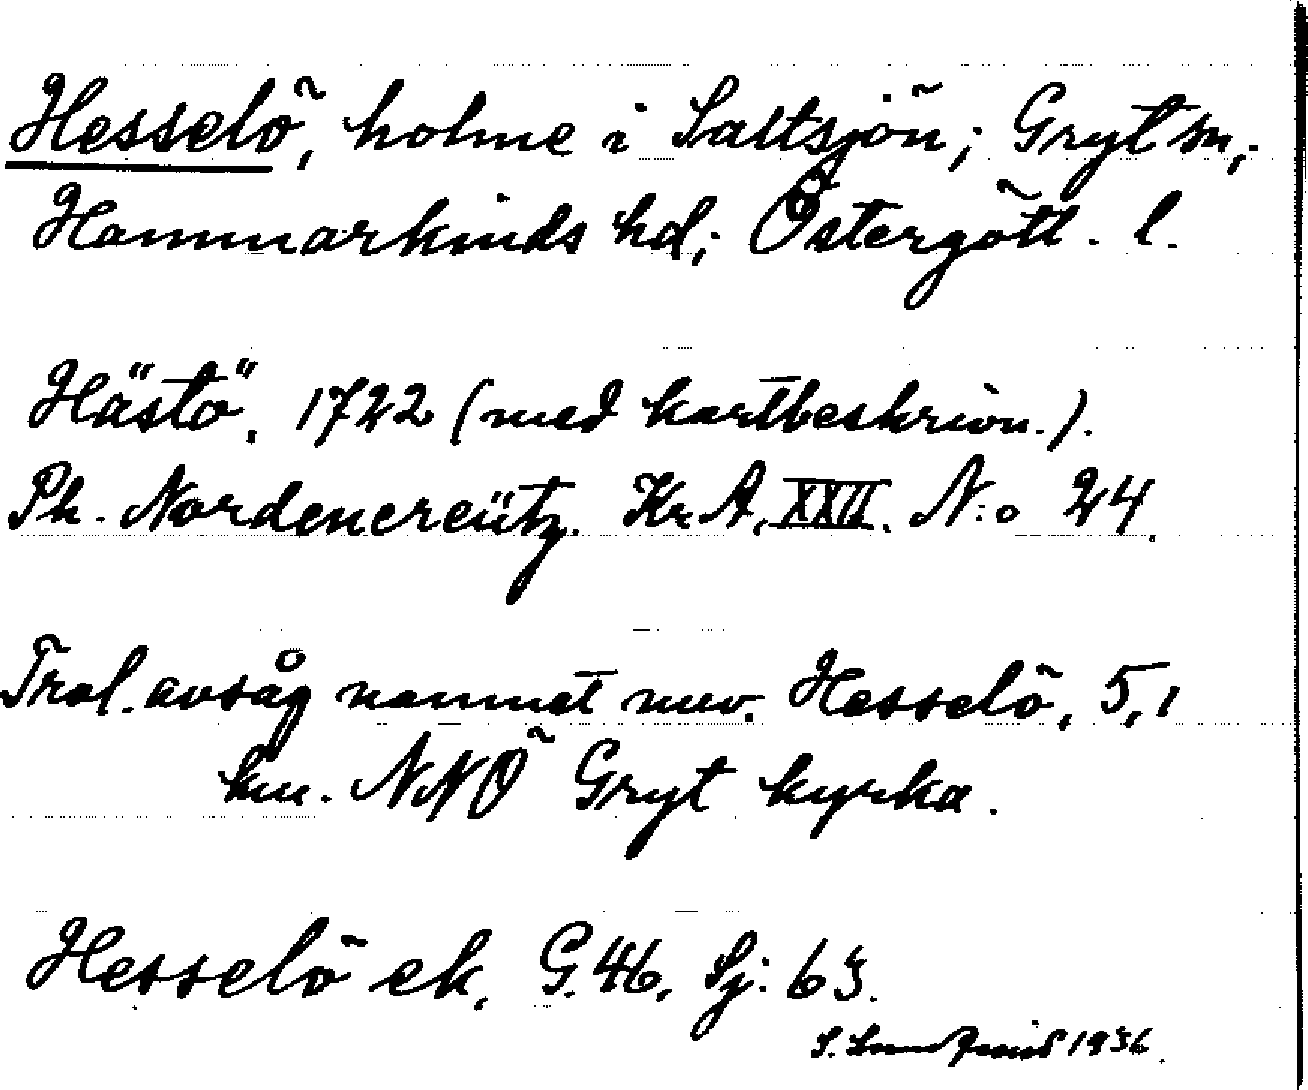 Hesselö, holme i Saltsjön; Gryt sn,
Hammarkinds hd; Östergötl. l.
Hästö. 1722 (med kartbeskrivn.).
Ph. Nordenereütz. Kr.A. XXII. N:o 24.
Trol. avsåg namnet nuv. Hesselö, 5,1
km. NNÖ Gryt kyrka.
Hesselö ek. G. 46. Sj: 63.
S. 1936.